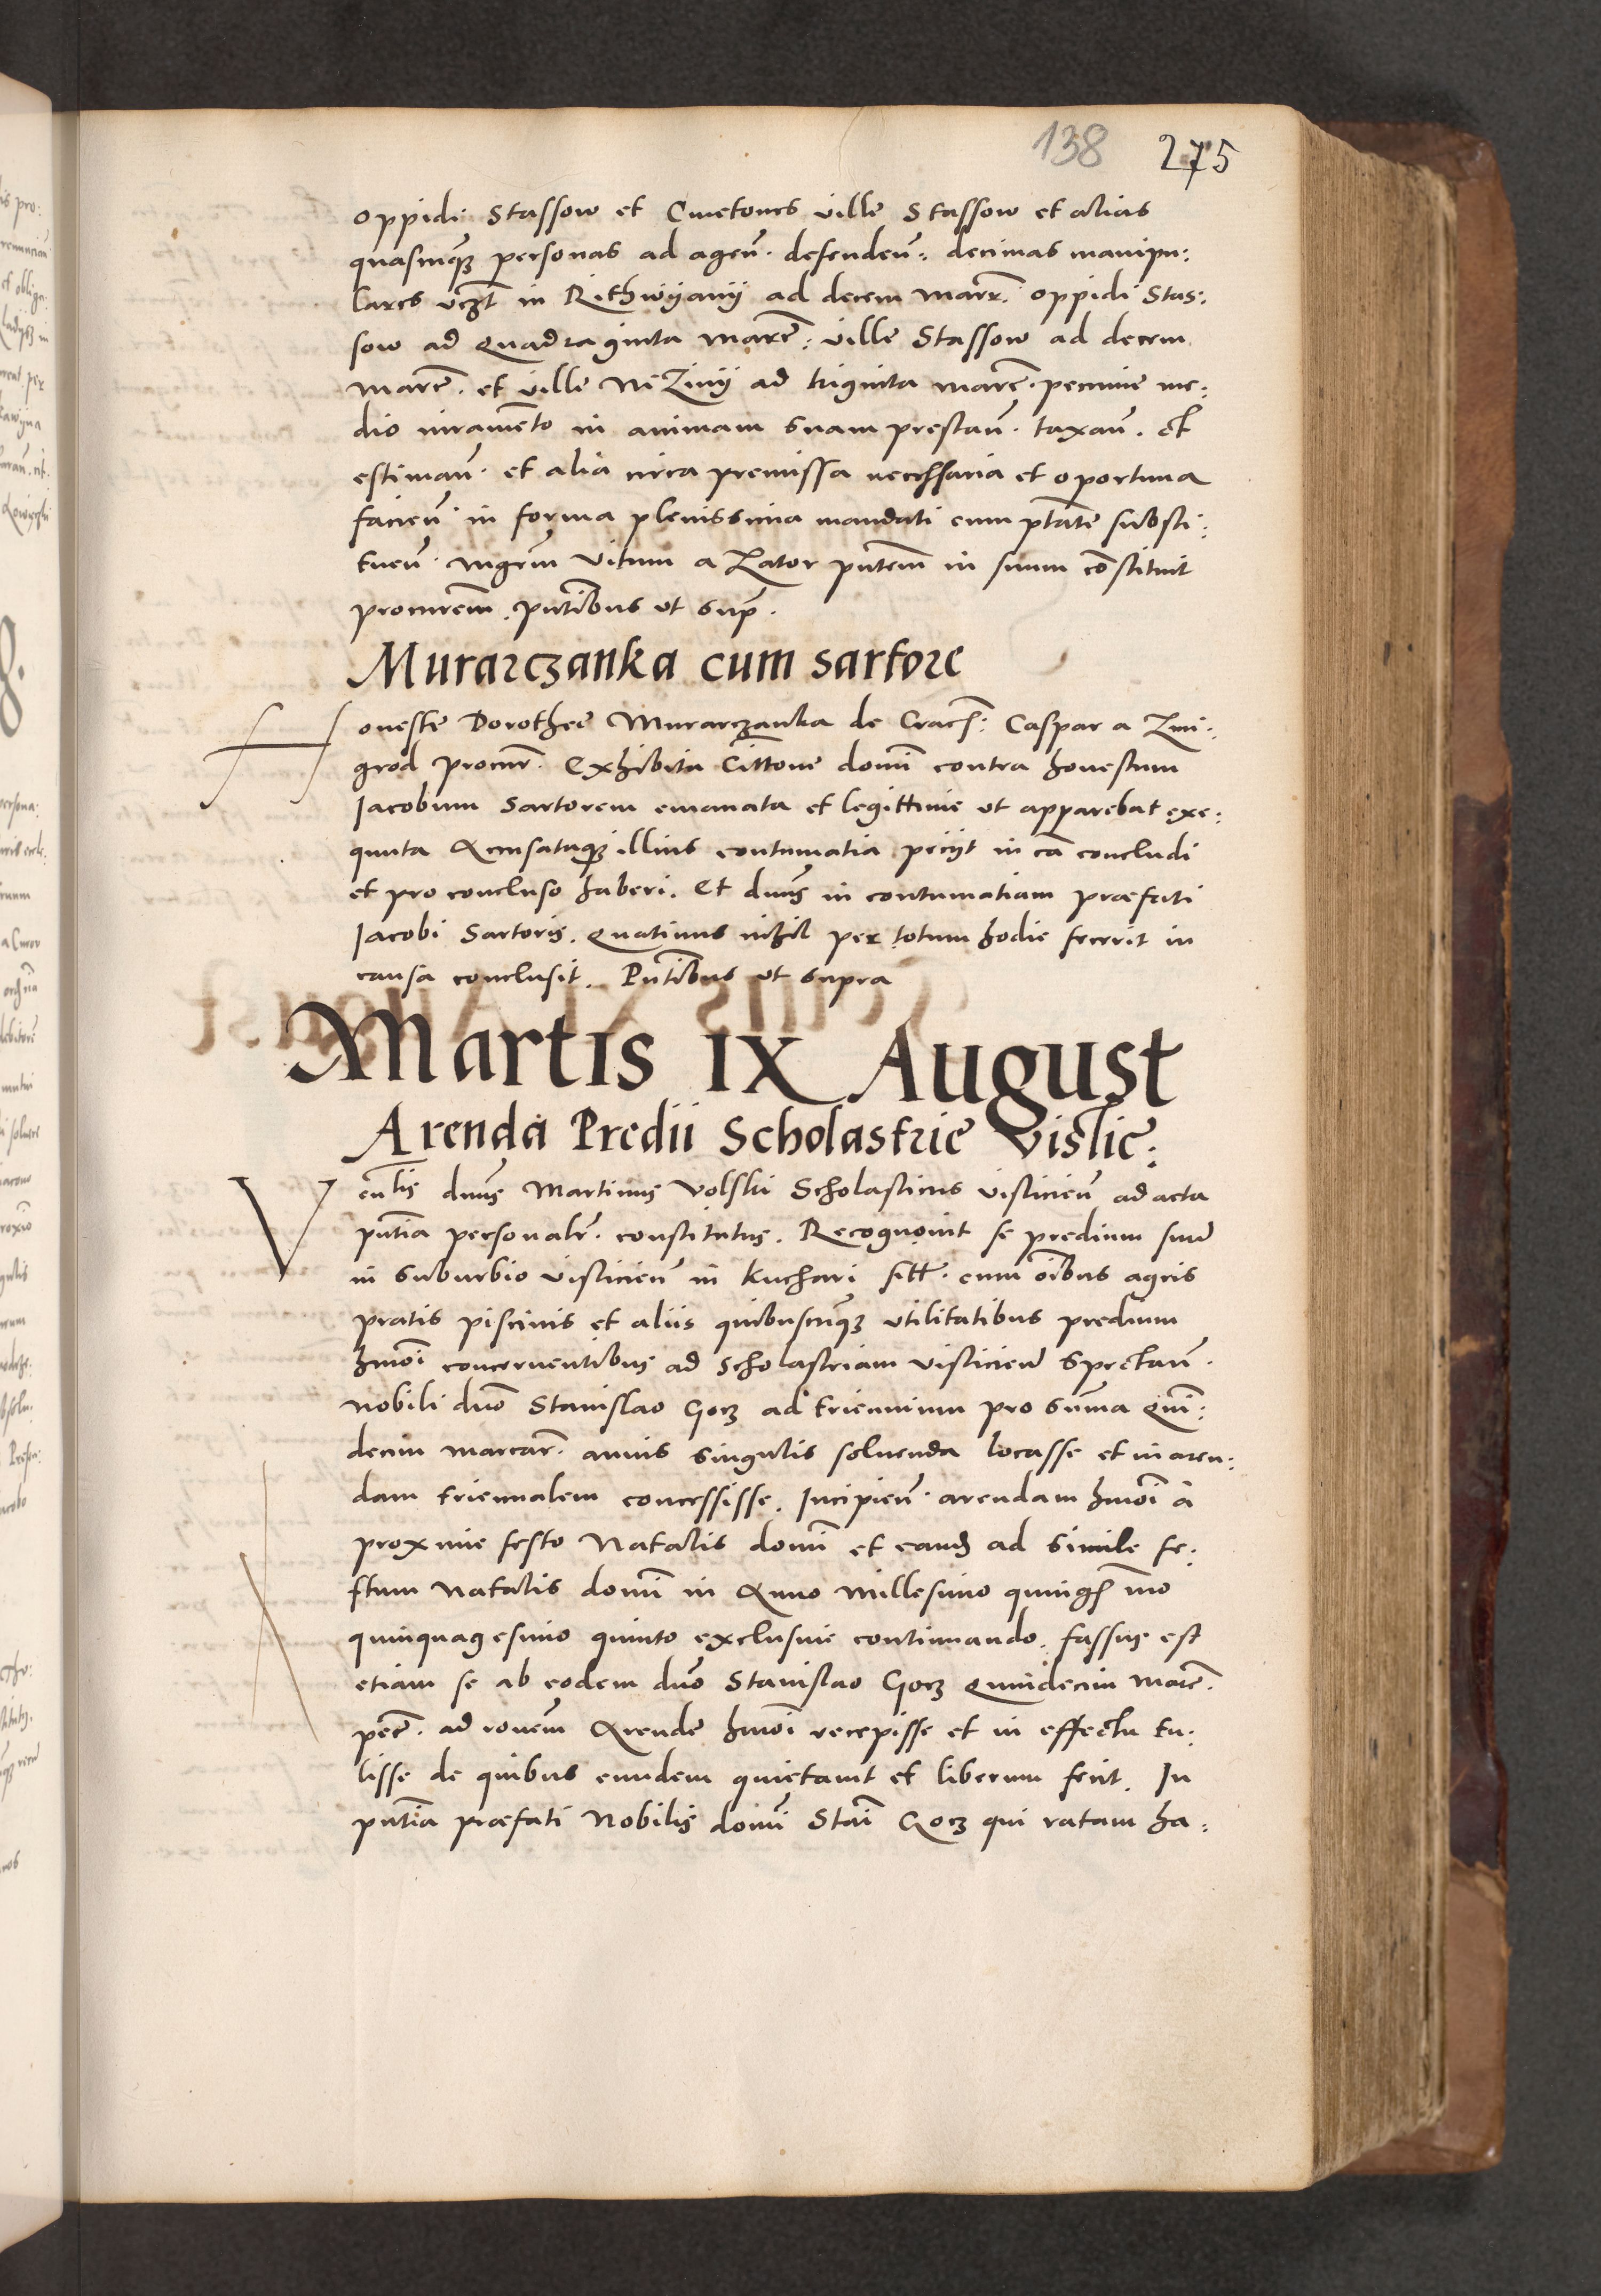 138 275
oppidi Stassow et Cmetones ville Stassow et alias
quascunq₃ personas ad ageñ. defendeñ. decimas manipu:
lares vcz̃t in Rithwÿanÿ ad decem marc̃. oppidi Stas:
sow ad Quadraginta marc̃: ville Stassow ad decem
marc̃. et ville Nizinÿ ad triginta marc̃. pecunie me:
dio iuramento in animam suam prestañ. taxañ. et
estimañ. et alia circa premissa necessaria et oportuna
facieñ in forma plenissima mandati cum ptãte substi:
tueñ. mgr̃m Vitum a Zator pñtem in suum cõstituit
procur̃em. pñtibus ut sup̃.
Murarczanka cum sartore
Honeste Dorothee Murarczanka de Crac̃. Caspar a Zmi:
grod procur̃. Exhibita Citt̃one domĩ contra honestum
Iacobum Sartorem emanata et legittime ut apparebat exe:
quuta Accusataq₃ illius contumatia peciÿt in cã concludi
et pro concluso haberi. Et dñus in contumatiam præfati
Iacobi Sartoris. Quatinus nihil per totum hodie fecerit in
causa conclusit. Pñtibus ut supra
Martis IX August
Arenda Predii Scholastrie vislic:
Veñlis dñus Martinus Volski Scholasticus vislicieñ ad acta
pñtia personalr̃. constitutus. Recognovit se predium suũ
in suburbio vislicieñ in Kuchari sitt̃. cum oĩbus agris
pratis piscinis et aliis quibuscunq₃ utilitatibus predium
hmõi concernentibus ad scholastriam vislicieñ spectañ.
Nobili dño Stanislao Gorz ad triennium pro sum̃a Quĩ:
decim marcar̃. annis singulis soluenda locasse et in aren:
dam triennalem concessisse. Incipieñ. arendam hmõi a
proxime festo Natalis domĩ et eand̃ ad simile fe:
stum Natalis domĩ in Anno millesimo quinges̃imo
quinquagesimo quinto exclusive continuando. fassus est
etiam se ab eodem dño Stanislao Gorz Quindecim marc̃.
pecc̃. ad rõnem Arende hmõi recepisse et in effectu tu:
lisse de quibus eundem quietavit et liberum fecit. In
pñtia præfati Nobilis domĩ Stañi Gorz qui ratam ha: